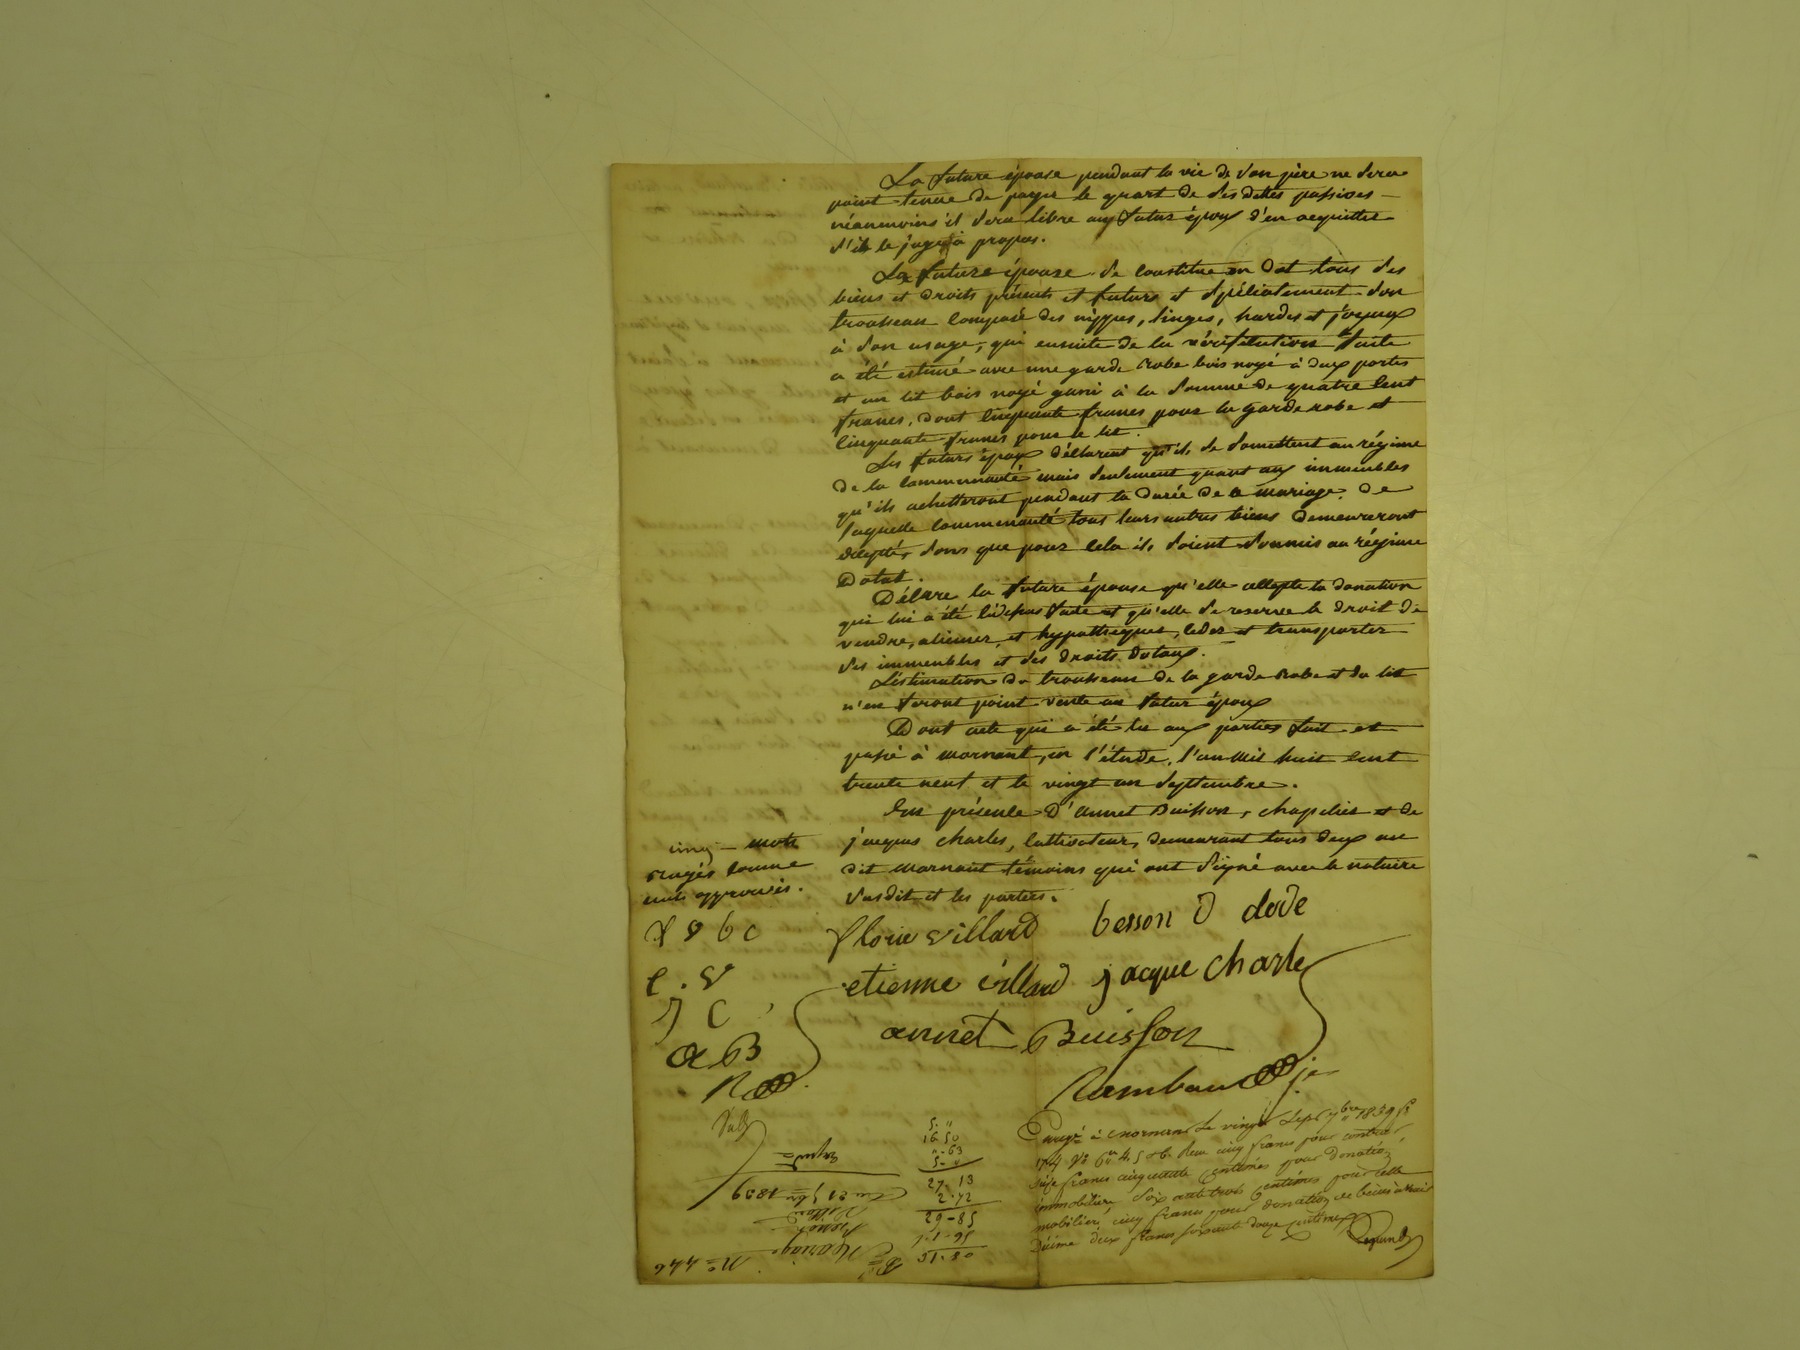 La future épouse pendant la vie de son père ne sera
point tenue de payer le quart de ses dettes passives —
néanmoins il sera libre aux futurs époux d'en acquitter
s'ils le juge à propos.
La future épouse se constitue en dot tous ses
biens et droits présents et futurs et spécialement son
trousseau composé des nippes, linges, hardes et joyaux
à son usage, qui ensuite de la vérification faite
a été estimé avec une garde robe bois noyé à deux portes
et un lit bois noyé garni à la somme de quatre cent
francs, dont cinquante francs pour la garde robe et
cinquante francs pour le lit.
Les futurs époux déclarent qu'ils se somettent au régime
de la communauté mais seulement quant aux immeubles
qu'ils achetteront pendant la durée de ce mariage, de
laquelle communauté tous leurs autres biens demeureront
exceptés, sans que pour cela ils soient soumis au régime
Dotal.
Déclare la future épouse qu'elle accepte la donation
qui lui a été cidessus faite et qu'elle se reserve le droit de
vendre, aliener, et hypothequer, ceder et transporter
ses immeubles et ses droits dotaux.
L'éstimation du trousseau de la garde robe et du lit
n'en feront point vente au futur époux
Dont acte qui a été lu aux parties fait et
passé à mornant, en l'étude, l'an mil huit cent
trente neuf et le vingt un septembre.
En présence D'annet Buisson, chapelier et de
jacques charles, cultivateur, demeurant tous deux au
dit mornant témoins qui ont signé avec le notaire
susdit et les parties.
cinq mots
rayés comme
nuls approuvés.
florie villard besson D dode
etienne villard jacque charle
annet Buisson
Rambaud je
e. v
J C
a B
5. "
16 50
" - 63
5 - "
27 - 13
2 - 72
29 - 85
51 - 80
Enregé à mornant le vingt sept 7bre 1839 f°
174 V° Cen 4, 5 et 6. Reçu cinq francs pour contrat,
seize francs cinquante centimes pour donation
immobilière, soixante trois centimes pour celle
mobilière, cinq francs pour donation de biens à venir
Dixième deux francs soixante douze centimes
Du 21 7bre 1839
Mariage
Villard
N° 446